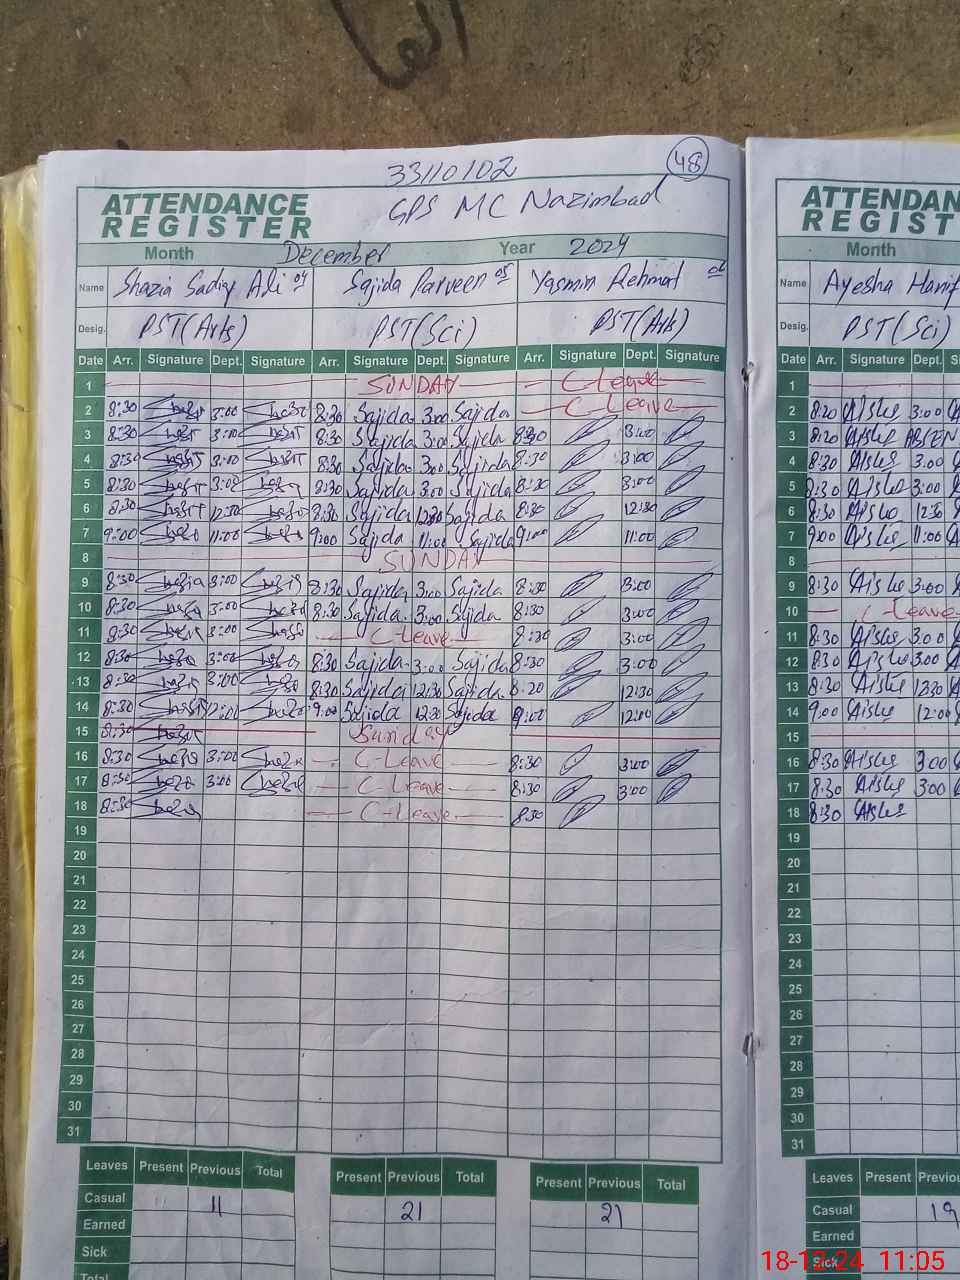 33110102
48
ATTENDANCE REGISTER
GPS MC Nazimbad
Month December Year 2024
Name Shazia Sadiq Ali 04 Sajida Parveen 05 Yasmin Rehmat 06
Desig. PST(Arts) PST(Sci) PST(Arts)
Date Arr. Signature Dept. Signature Arr. Signature Dept. Signature Arr. Signature Dept. Signature
1 SUNDAY C Leave
2 8:30 3:00 8:30 Sajida 3:00 Sajida C Leave
3 8:30 3:00 8:30 Sajida 3:00 Sajida 8:30 3:00
4 8:30 3:00 8:30 Sajida 3:00 Sajida 8:30 3:00
5 8:30 3:00 8:30 Sajida 3:00 Sajida 8:30 3:00
6 8:30 12:30 8:30 Sajida 12:30 Sajida 8:30 12:30
7 9:00 11:00 9:00 Sajida 11:00 Sajida 9:00 11:00
8 SUNDAY
9 8:30 3:00 8:30 Sajida 3:00 Sajida 8:30 3:00
10 8:30 3:00 8:30 Sajida 3:00 Sajida 8:30 3:00
11 8:30 3:00 C-Leave 8:30 3:00
12 8:30 3:00 8:30 Sajida 3:00 Sajida 8:30 3:00
13 8:30 8:30 Sajida 12:30 Sajida 8:20 12:30
14 8:30 12:00 9:00 Sajida 12:30 Sajida 9:00 12:00
15 8:30 Sunday
16 8:30 3:00 C-Leave 8:30 3:00
17 8:30 3:00 C-Leave 8:30 3:00
18 8:30 C-Leave 8:30
19
20
21
22
23
24
25
26
27
28
29
30
31
Leaves Present Previous Total Present Previous Total Present Previous Total
Casual 11 21 21
Earned
Sick
Total
ATTENDAN
REGIST
Month
Name Ayesha Hanif
Desig. PST(Sci)
Date Arr. Signature Dept. Si
1
2 8:20 3:00
3 8:20 ABSEN
4 8:30 3:00
5 8:30 3:00
6 8:30 12:30
7 9:00 11:00
8
9 8:30 3:00
10 C-Leave
11 8:30 3:00
12 8:30 3:00
13 8:30 12:30
14 9:00 12:00
15
16 8:30 3:00
17 8:30 3:00
18 8:30
19
20
21
22
23
24
25
26
27
28
29
30
31
Leaves Present Previou
Casual 19
Earned
Sick
18-12-24 11:05